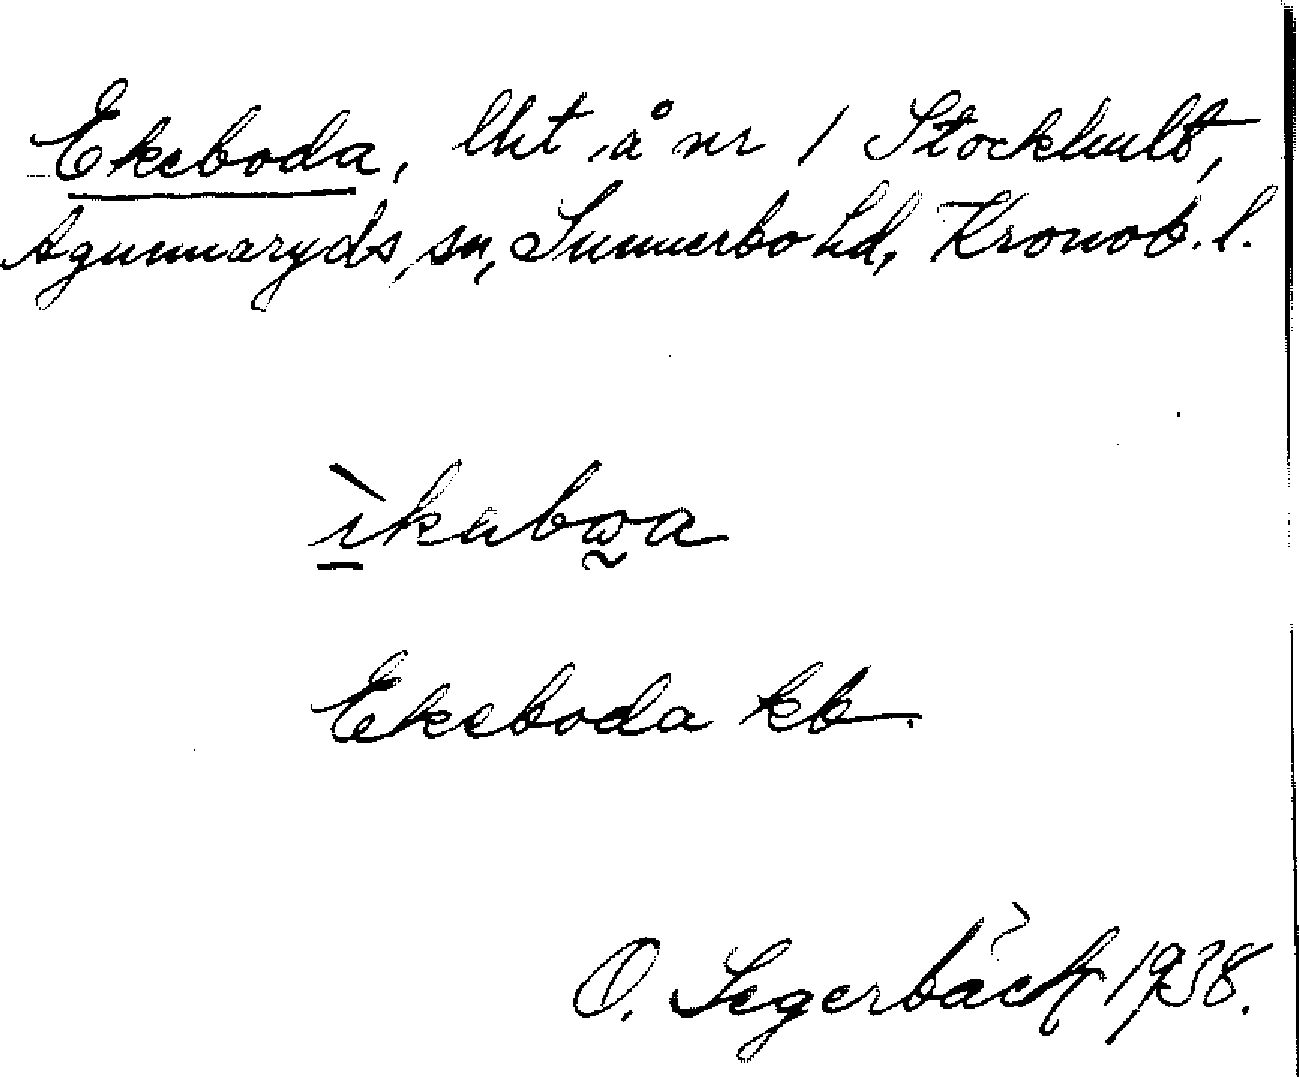 Ekeboda, lht å nr 1 Stockhult,
Agunnaryds sn, Sunnerbo hd, Kronob. l.
ìkabωa
Ekeboda kb.
O. Segerbäck 1938.